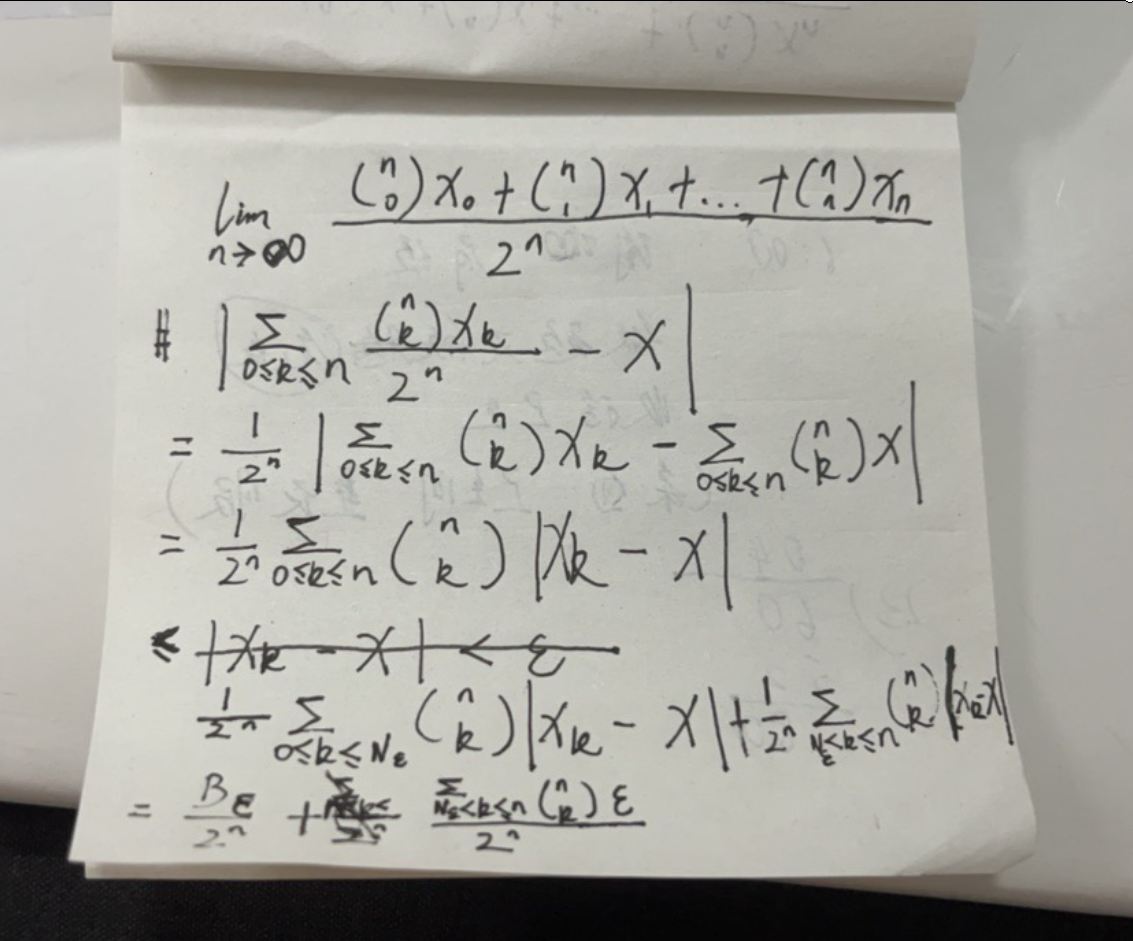 lim_{n→∞} \frac{\binom{n}{0}x_0 + \binom{n}{1}x_1 + ... + \binom{n}{n}x_n}{2^n}
| \sum_{0≤k≤n} \frac{\binom{n}{k}x_k}{2^n} - x |
= \frac{1}{2^n} | \sum_{0≤k≤n} \binom{n}{k} x_k - \sum_{0≤k≤n} \binom{n}{k} x |
= \frac{1}{2^n} \sum_{0≤k≤n} \binom{n}{k} | x_k - x |
≤ | x_k - x | < ε
\frac{1}{2^n} \sum_{0≤k≤N_ε} \binom{n}{k} | x_k - x | + \frac{1}{2^n} \sum_{N_ε<k≤n} \binom{n}{k} | x_k - x |
= \frac{B_ε}{2^n} + \frac{\sum_{N_ε<k≤n} \binom{n}{k} ε}{2^n}